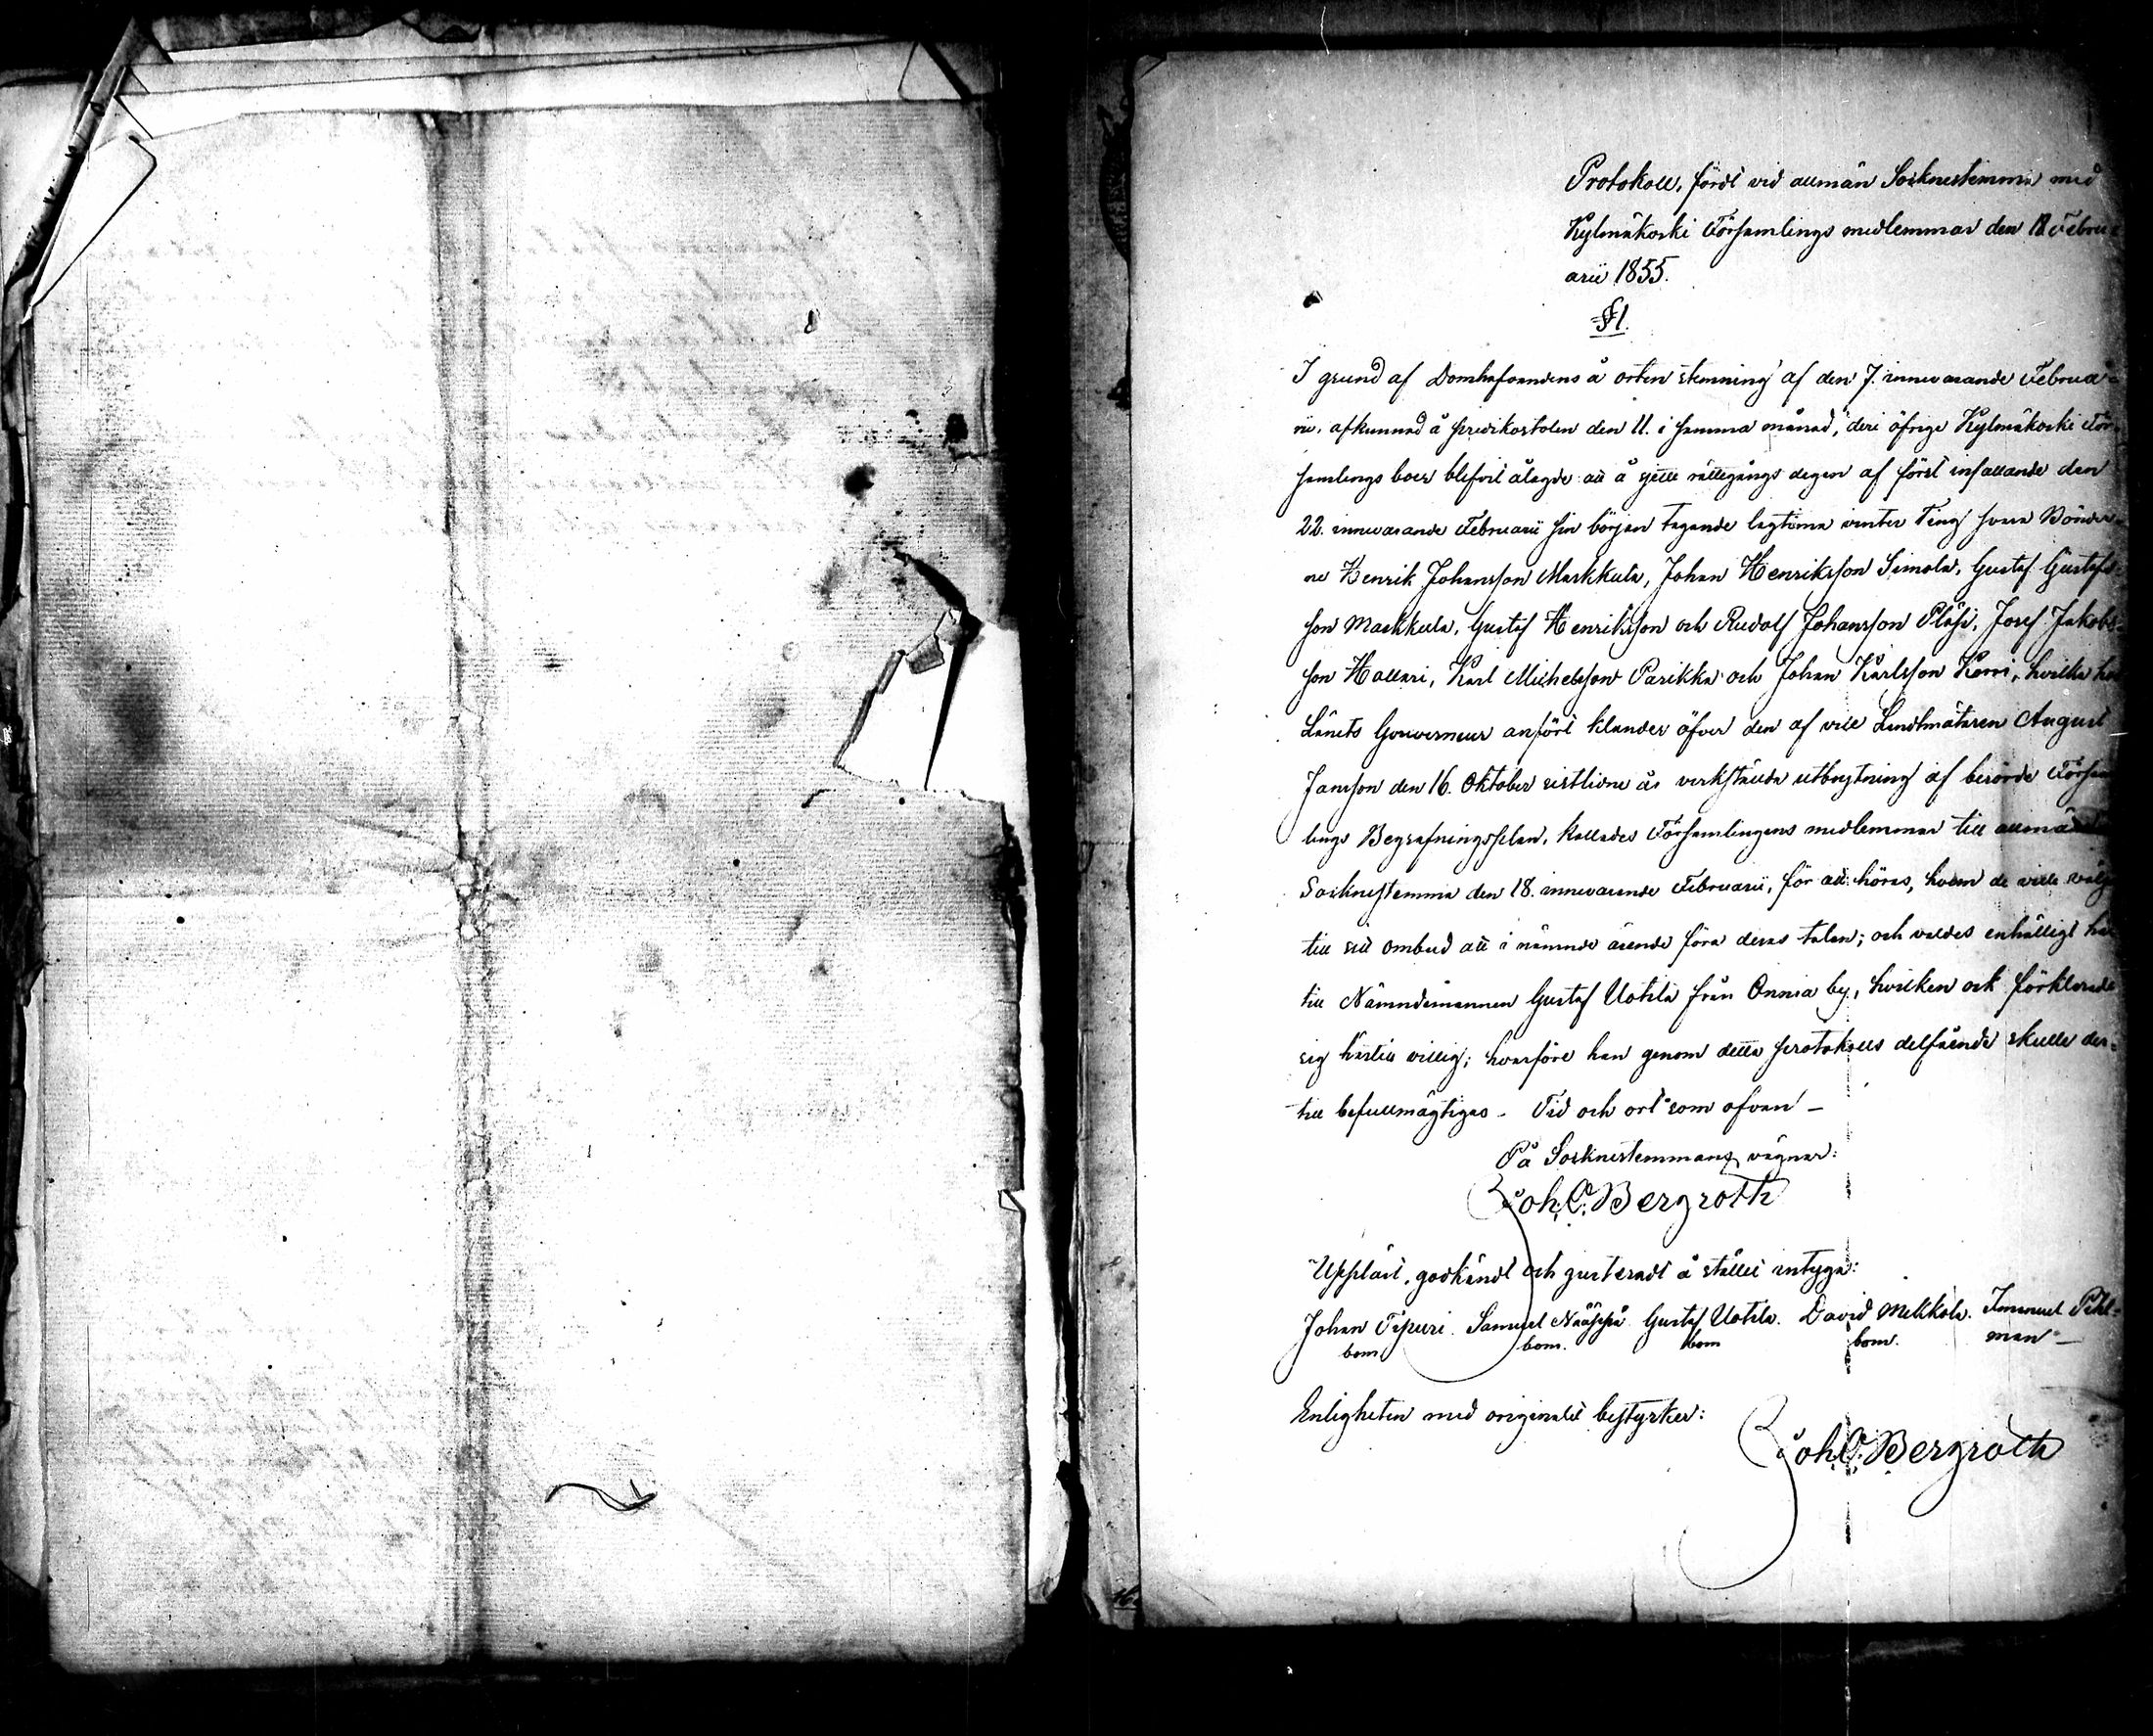 Protokoll, fördt vid allmän Socknestemma med
Kylmäkoski Församlings medlemmar den 18 Febru-
arii 1855.
§ 1.
I grund af Domhafvandens å orten stemning af den 7. innevarande Februa-
rii, afkunnad å predikostolen den 11. i samma månad, deri öfrige Kylmäkoski För-
samlings boer blifvit ålagde att å sjette rättegångs dagen af först infallande den
22. innevarande Februarii sin början tagande lagtima vinter Ting svara Bönder-
ne Henrik Johansson Markkula, Johan Henriksson Simola, Gustaf Gustafs-
son Markkula, Gustaf Henriksson och Rudolf Johansson Pläsi, Josef Jakobs-
son Hallari, Karl Michelsson Parikka och Johan Karlsson Korri, hvilka hos
Länets Gouverneur anfört klander öfver den af vice Landtmätaren August
Jansson den 16. Oktober sistlidne år verkstälda utbrytning af berörde Försam-
lings Begrafningsplan, kallades Församlingens medlemmar till allmän
Socknestemma den 18. innevarande Februarii, för att höras, hvem de ville välja
till sitt ombud att i nämnde ärende föra deras talan; och valdes enhälligt här
till Nämndemannen Gustaf Uotila från Onnia by, hvilken ock förklarade
sig härtill villig; hvarföre han genom detta protokolls delfående skulle der-
till befullmägtigas - Tid och ort som ofvan -
På Socknestemmans vägnar:
Joh. C. Bergroth
Uppläst, godkändt och justeradt å stället intyga:
Johan Tipuri. Samuel Nääppä Gustaf Uotila. David Mekkola. Immanuel Pihl-
bom. bom. bom bom. man -
Enligheten med originalet bestyrker:
Joh. C. Bergroth